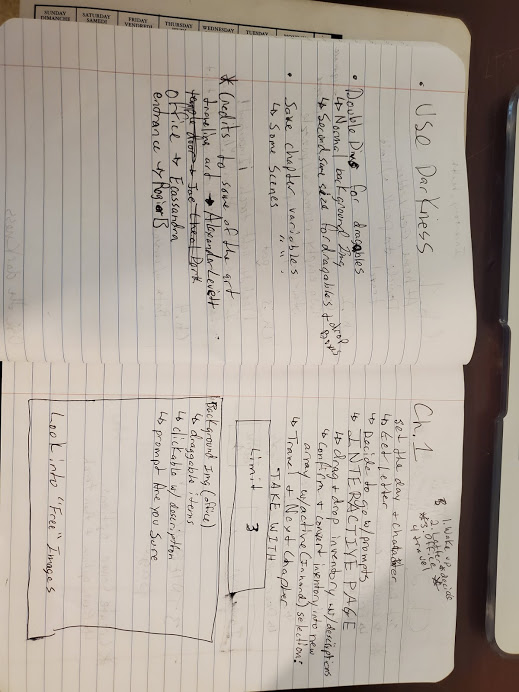 SUNDAY
DIMANCHE
SATURDAY
SAMEDI
FRIDAY
VENDREDI
THURSDAY
WEDNESDAY
TUESDAY
• USE DarKness
• Double Divs for dragables
↳ Normal background Img
↳ Second same size for dragables + drops
• Save chapter variables
↳ Some Scenes " " .
* Credits to some of the art
traveling art → Alexander
temple door → Joe
Office → Ecassandra
entrance → Rogier B
Ch. 1
B 1. Wake up, decide
2. letter decide
*3. Office *
4 travel
set the day + character
↳ Get Letter
↳ Decide to go w/ prompts
↳ INTERACTIVE PAGE
↳ drag + drop inventory w/ descriptions
↳ Confirm + convert inventory into new
array w/ active (Inhand) selection:
↳ Travel + Next Chapter
TAKE WITH
Limit 3
Background Img (office)
↳ draggable items
↳ clickable w/ description
↳ prompt Are you Sure
Look into "Free" Images